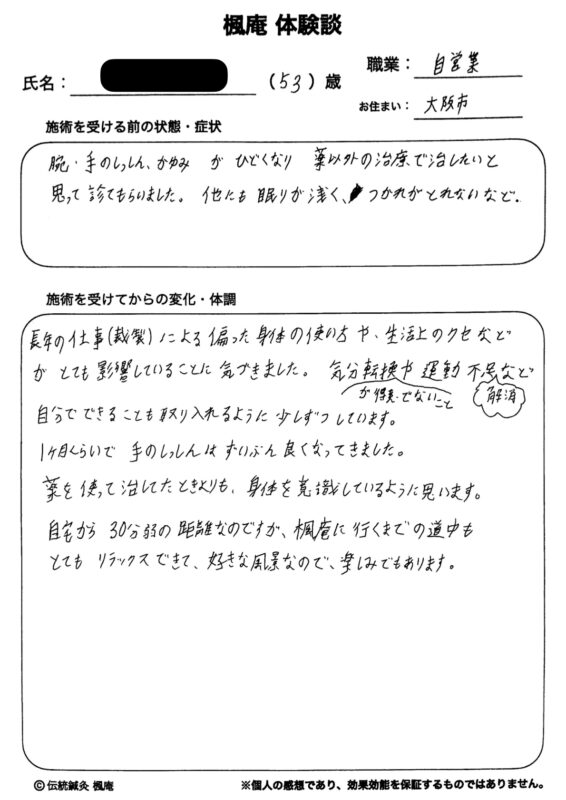 楓庵 体験談
氏名：　（53）歳
職業： 自営業
お住まい： 大阪市
施術を受ける前の状態・症状
腕・手のしっしん、かゆみ が ひどくなり 薬以外の治療で治したいと
思って診てもらいました。 他にも 眠りが浅く、つかれがとれないなど。
施術を受けてからの変化・体調
長年の仕事(裁製)による偏った身体の使い方や、生活上のクセなど
が とても影響していることに気づきました。 気分転換や運動不足など
が得意でないこと 解消
自分でできることも取り入れるように少しずつしています。
1ヶ月くらいで 手のしっしんは ずいぶん良くなってきました。
薬を使って治してたときよりも、身体を意識しているように思います。
自宅から 30分弱の距離なのですが、楓庵に行くまでの道中も
とても リラックスできて、好きな風景なので、楽しみでもあります。
© 伝統鍼灸 楓庵
※個人の感想であり、効果効能を保証するものではありません。